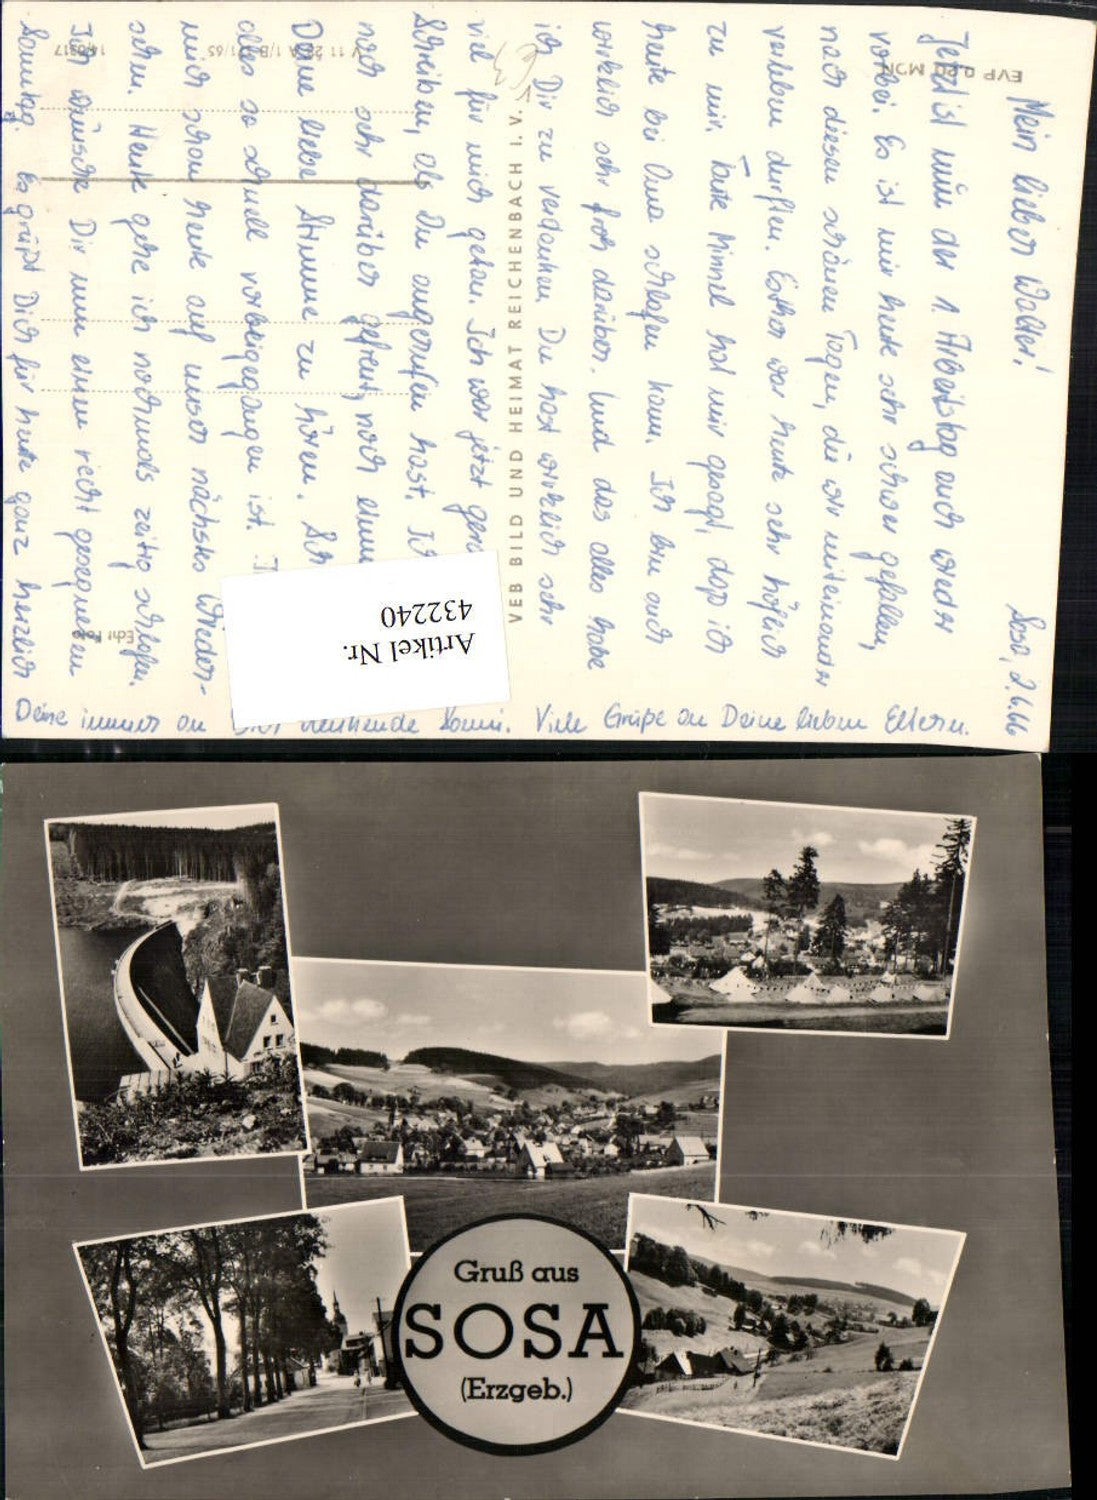 Sosa, 2.6.66
Mein lieber Walter!
Jetzt ist nun der 1. Arbeitstag auch wieder
vorbei. Es ist mir heute sehr schwer gefallen,
nach diesen schönen Tagen, die wir miteinander
verleben durften. Esther war heute sehr höflich
zu mir. Tante Minnel hat mir gesagt, dass ich
heute bei Oma schlafen kann. Ich bin auch
wirklich sehr froh darüber. Und das alles habe
ich Dir zu verdanken. Du hast wirklich sehr
viel für mich getan. Ich war jetzt
Schreiben, als Du angerufen hast.
mich sehr darüber gefreut, noch
Deine liebe Stimme zu hören.
alles so schnell vorbeigegangen ist.
mich schon heute auf unser nächstes Wieder-
sehn. Heute gehe ich nochmals zeitig schlafen.
Ich wünsche Dir nun einen recht gesegneten
Sonntag. Es grüßt Dich für heute ganz herzlich
Deine immer an denkende Viele Grüße an Deine lieben Eltern.
EVP 0.20 MDN
VEB BILD UND HEIMAT REICHENBACH I. V.
Echt Foto
Artikel Nr.
432240
Gruß aus
SOSA
(Erzgeb.)